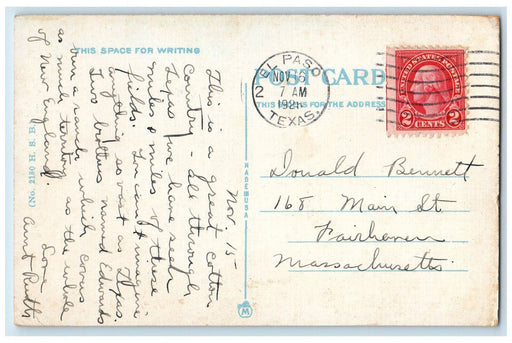 THIS SPACE FOR WRITING
POST CARD
THIS SPACE IS FOR THE ADDRESS
EL PASO
NOV 15
7 AM
2
TEXAS.
UNITED STATES POSTAGE
2 CENTS 2
Nov. 15-
This is a great cotton
country - all through
Texas we have seen
miles & miles of these
fields. You can't imagine
anything so vast as Texas.
Two brothers named Edwards
own a ranch which covers
as much territory as the whole
of New England.
Love
Aunt Ruth
(No. 2180 H. B. B.)
MADE IN USA
M
Donald Bennett
168 Main St
Fairhaven
Massachusetts.